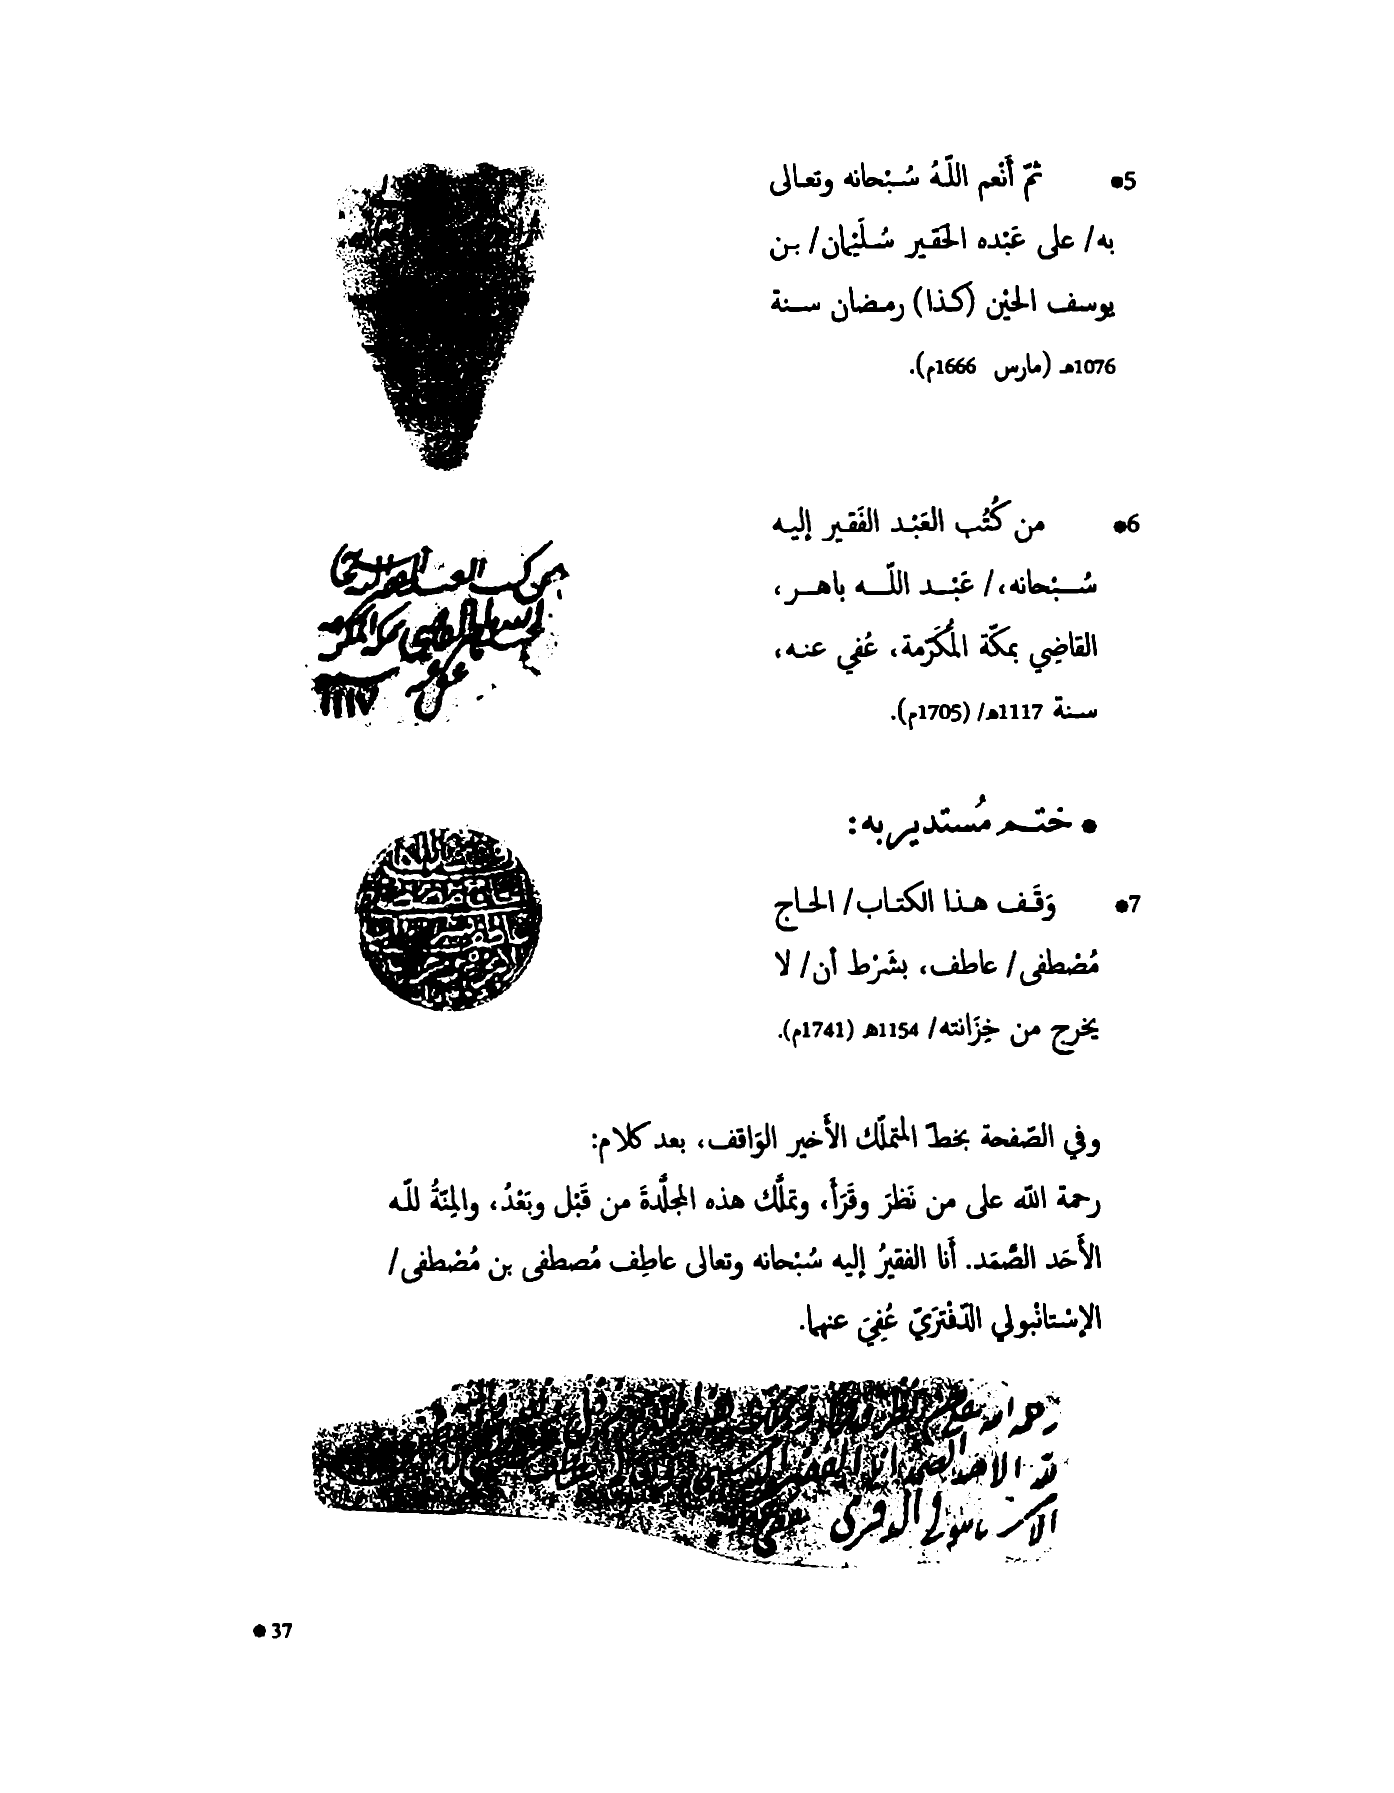 5• ثمّ أَنْعم اللّهُ سُبْحانه وتعالى
به/ على عَبْده الحَقير سُلَيْمان/ بن
يوسف الحيْن (كذا) رمضان سنة
1076هـ (مارس 1666م).
6• من كُتُب العَبْد الفَقير إليه
سُبْحانه،/ عَبْد اللّه باهر،
القاضِي بمكّة المُكَرّمة، عُفي عنه،
سنة 1117هـ/ (1705م).
• ختم مُستدير به:
7• وَقَف هذا الكتاب/ الحاج
مُصْطفى/ عاطف، بشَرْط أن/ لا
يخرج من خِزَانته/ 1154هـ (1741م).
وفي الصّفحة بخطّ المتملّك الأَخير الوَاقف، بعد كلام:
رحمة الله على من نَظرَ وقَرَأَ، وتملُّك هذه المجلَّدةَ من قَبْل وبَعْدُ، والمِنّةُ للّه
الأَحَد الصَّمَد. أَنا الفقيرُ إليه سُبْحانه وتعالى عاطِف مُصطفى بن مُصْطفى/
الإسْتانْبولي الدّفْتَرَيّ عُفِيَ عنهما.
من كتب العبد الفقير اليه
سنة ١١١٧
رحمة الله
لله الاحد الصمد انا الفقير
الدفتري
37 •